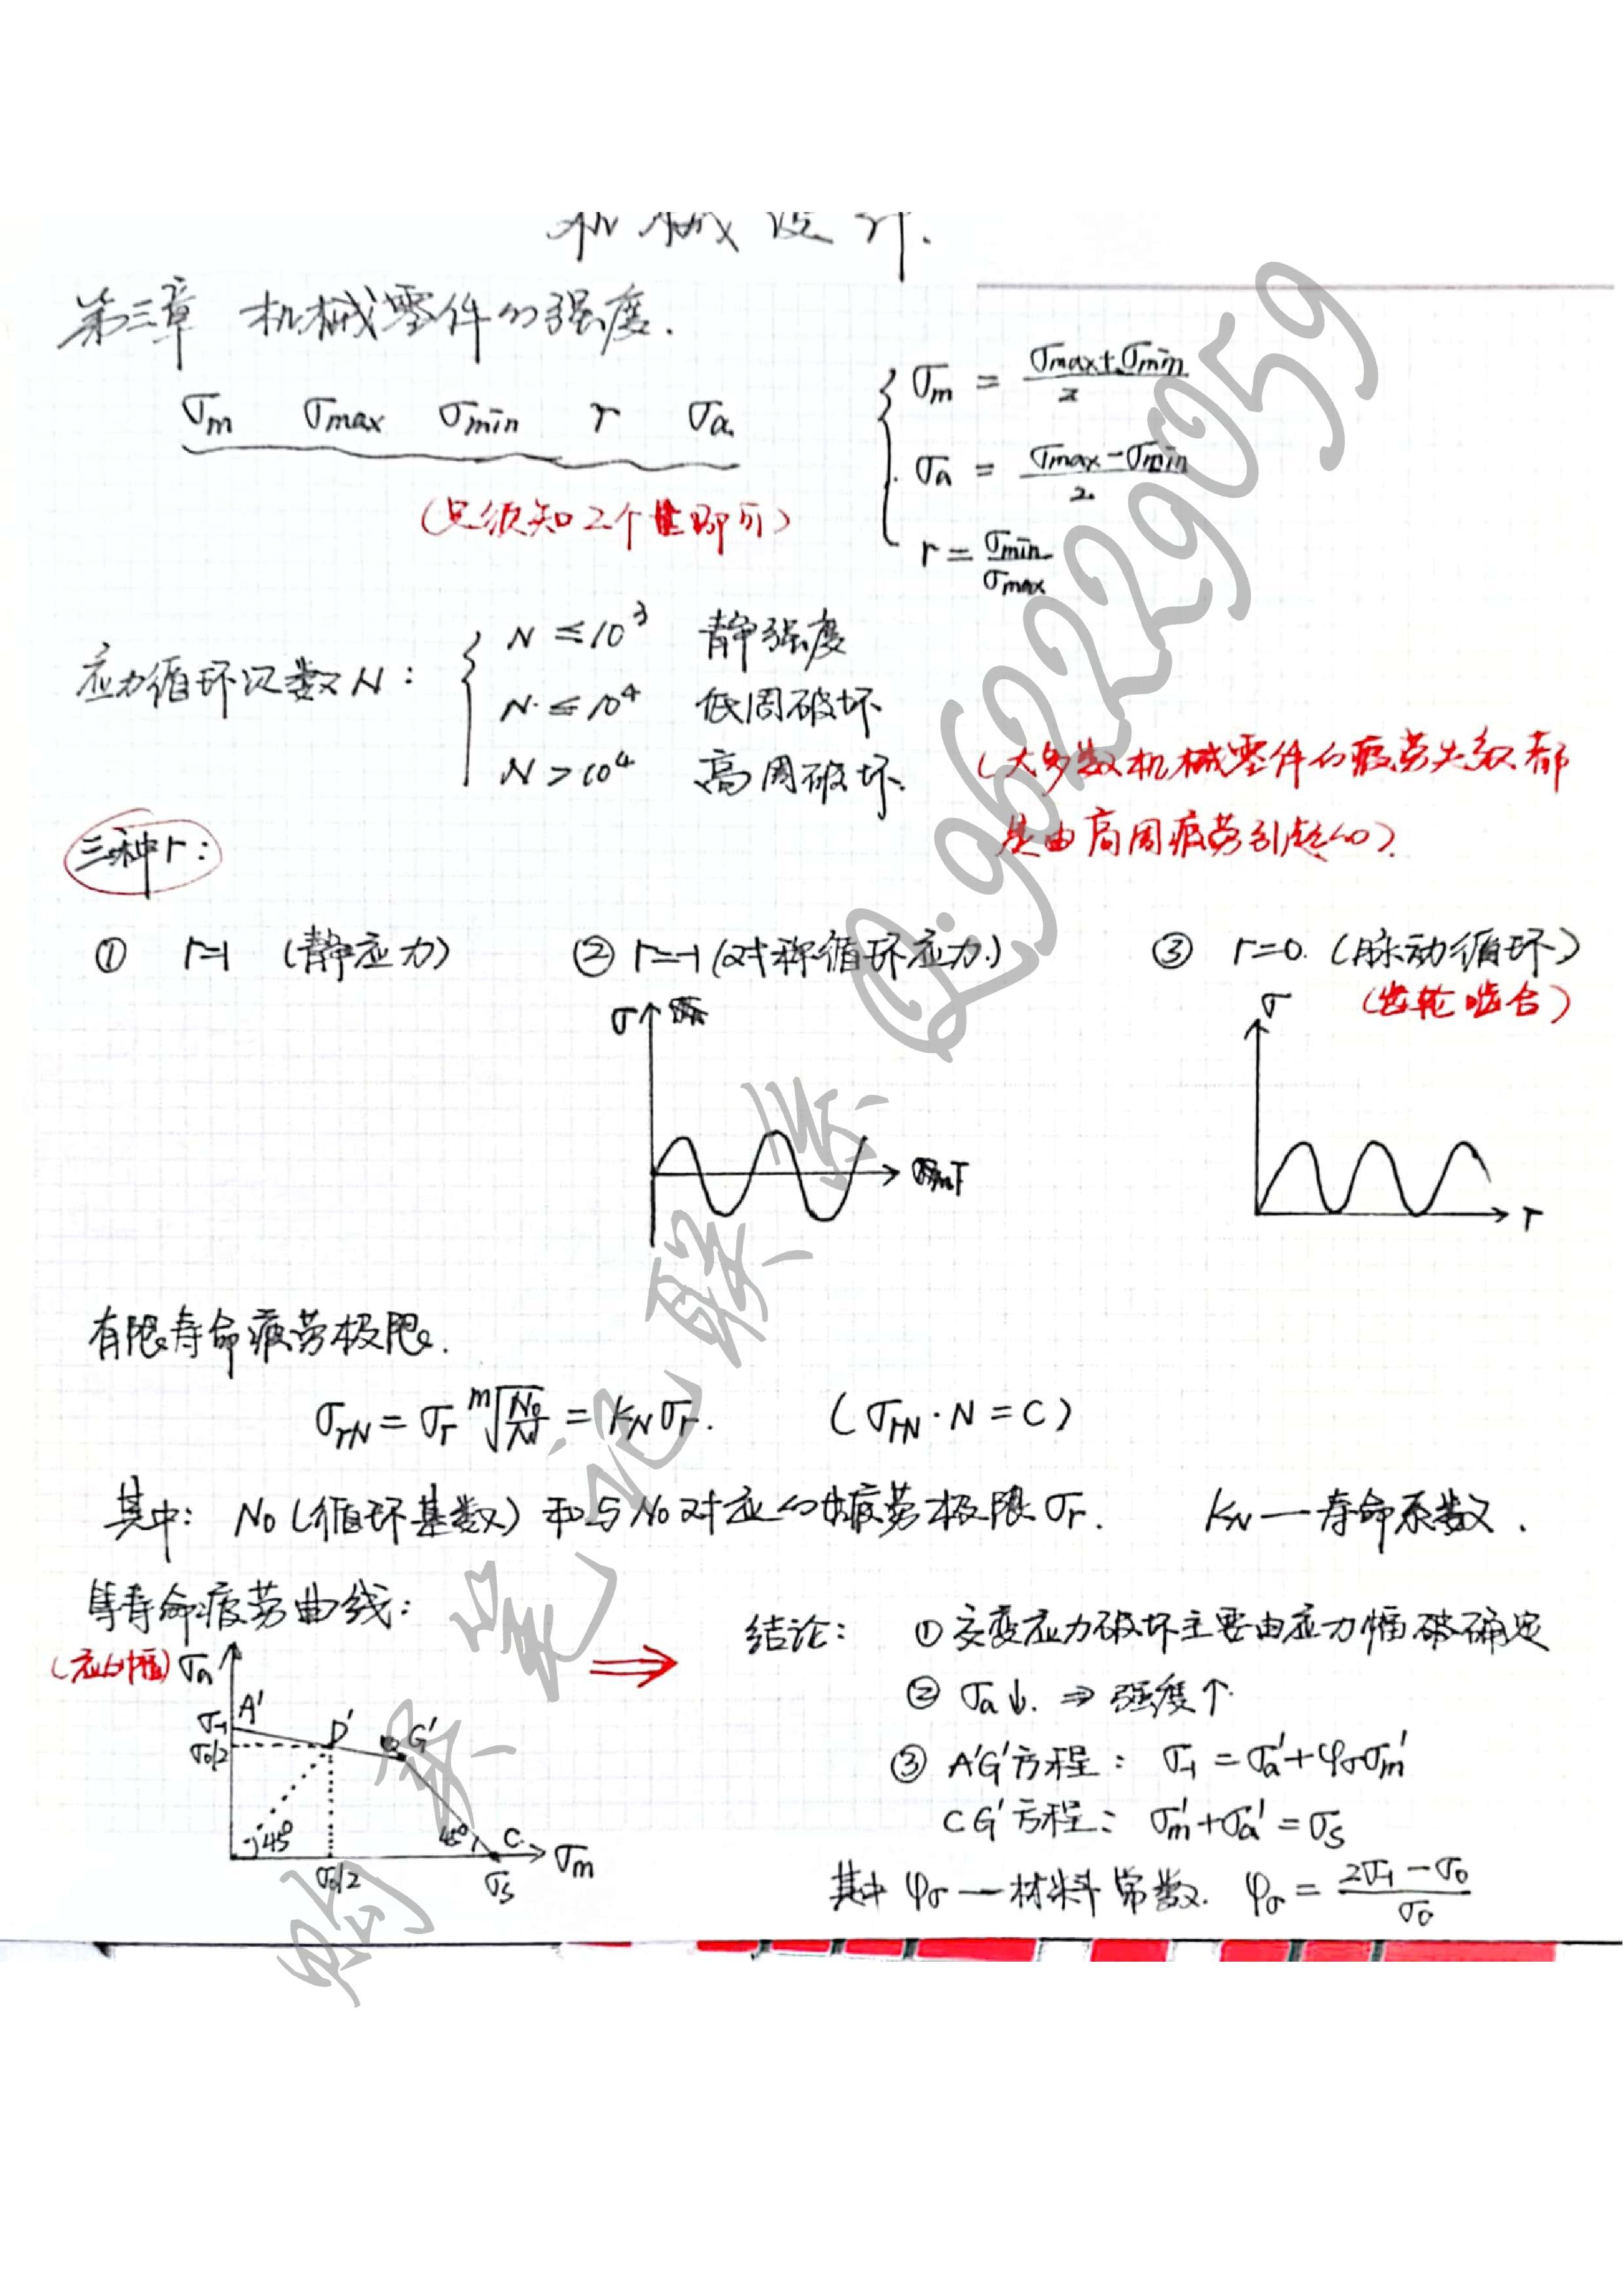 机械设计.
第三章 机械零件的强度.
σm σmax σmin r σa
(只须知2个量即可)
σm = (σmax+σmin)/2
σa = (σmax-σmin)/2
r = σmin/σmax
应力循环次数N:
N ≤ 10³ 静强度
N ≤ 10⁴ 低周破坏
N > 10⁴ 高周破坏.
(大多数机械零件的疲劳失效都
是由高周疲劳引起的).
三种r:
① r=1 (静应力) ② r=-1 (对称循环应力) ③ r=0. (脉动循环)
(齿轮啮合)
σ
σ
r
有限寿命疲劳极限.
σrN = σr ᵐ√(N₀/N) = KNσr. (σrN·N=C)
其中: N₀(循环基数)和与N₀对应的疲劳极限σr. KN—寿命系数.
等寿命疲劳曲线:
(应力幅) σa
A'
σ-1
σ0/2
D'
G'
45°
45°
C
σm
σ0/2
σs
结论: ①交变应力破坏主要由应力幅破确定
② σa↓. ⇒ 强度↑
③ A'G'方程: σ-1 = σa'+φσσm'
CG'方程: σm'+σa'=σs
其中 φσ—材料常数. φσ = (2σ-1-σ0)/σ0
购买笔记联系:Q:96229059